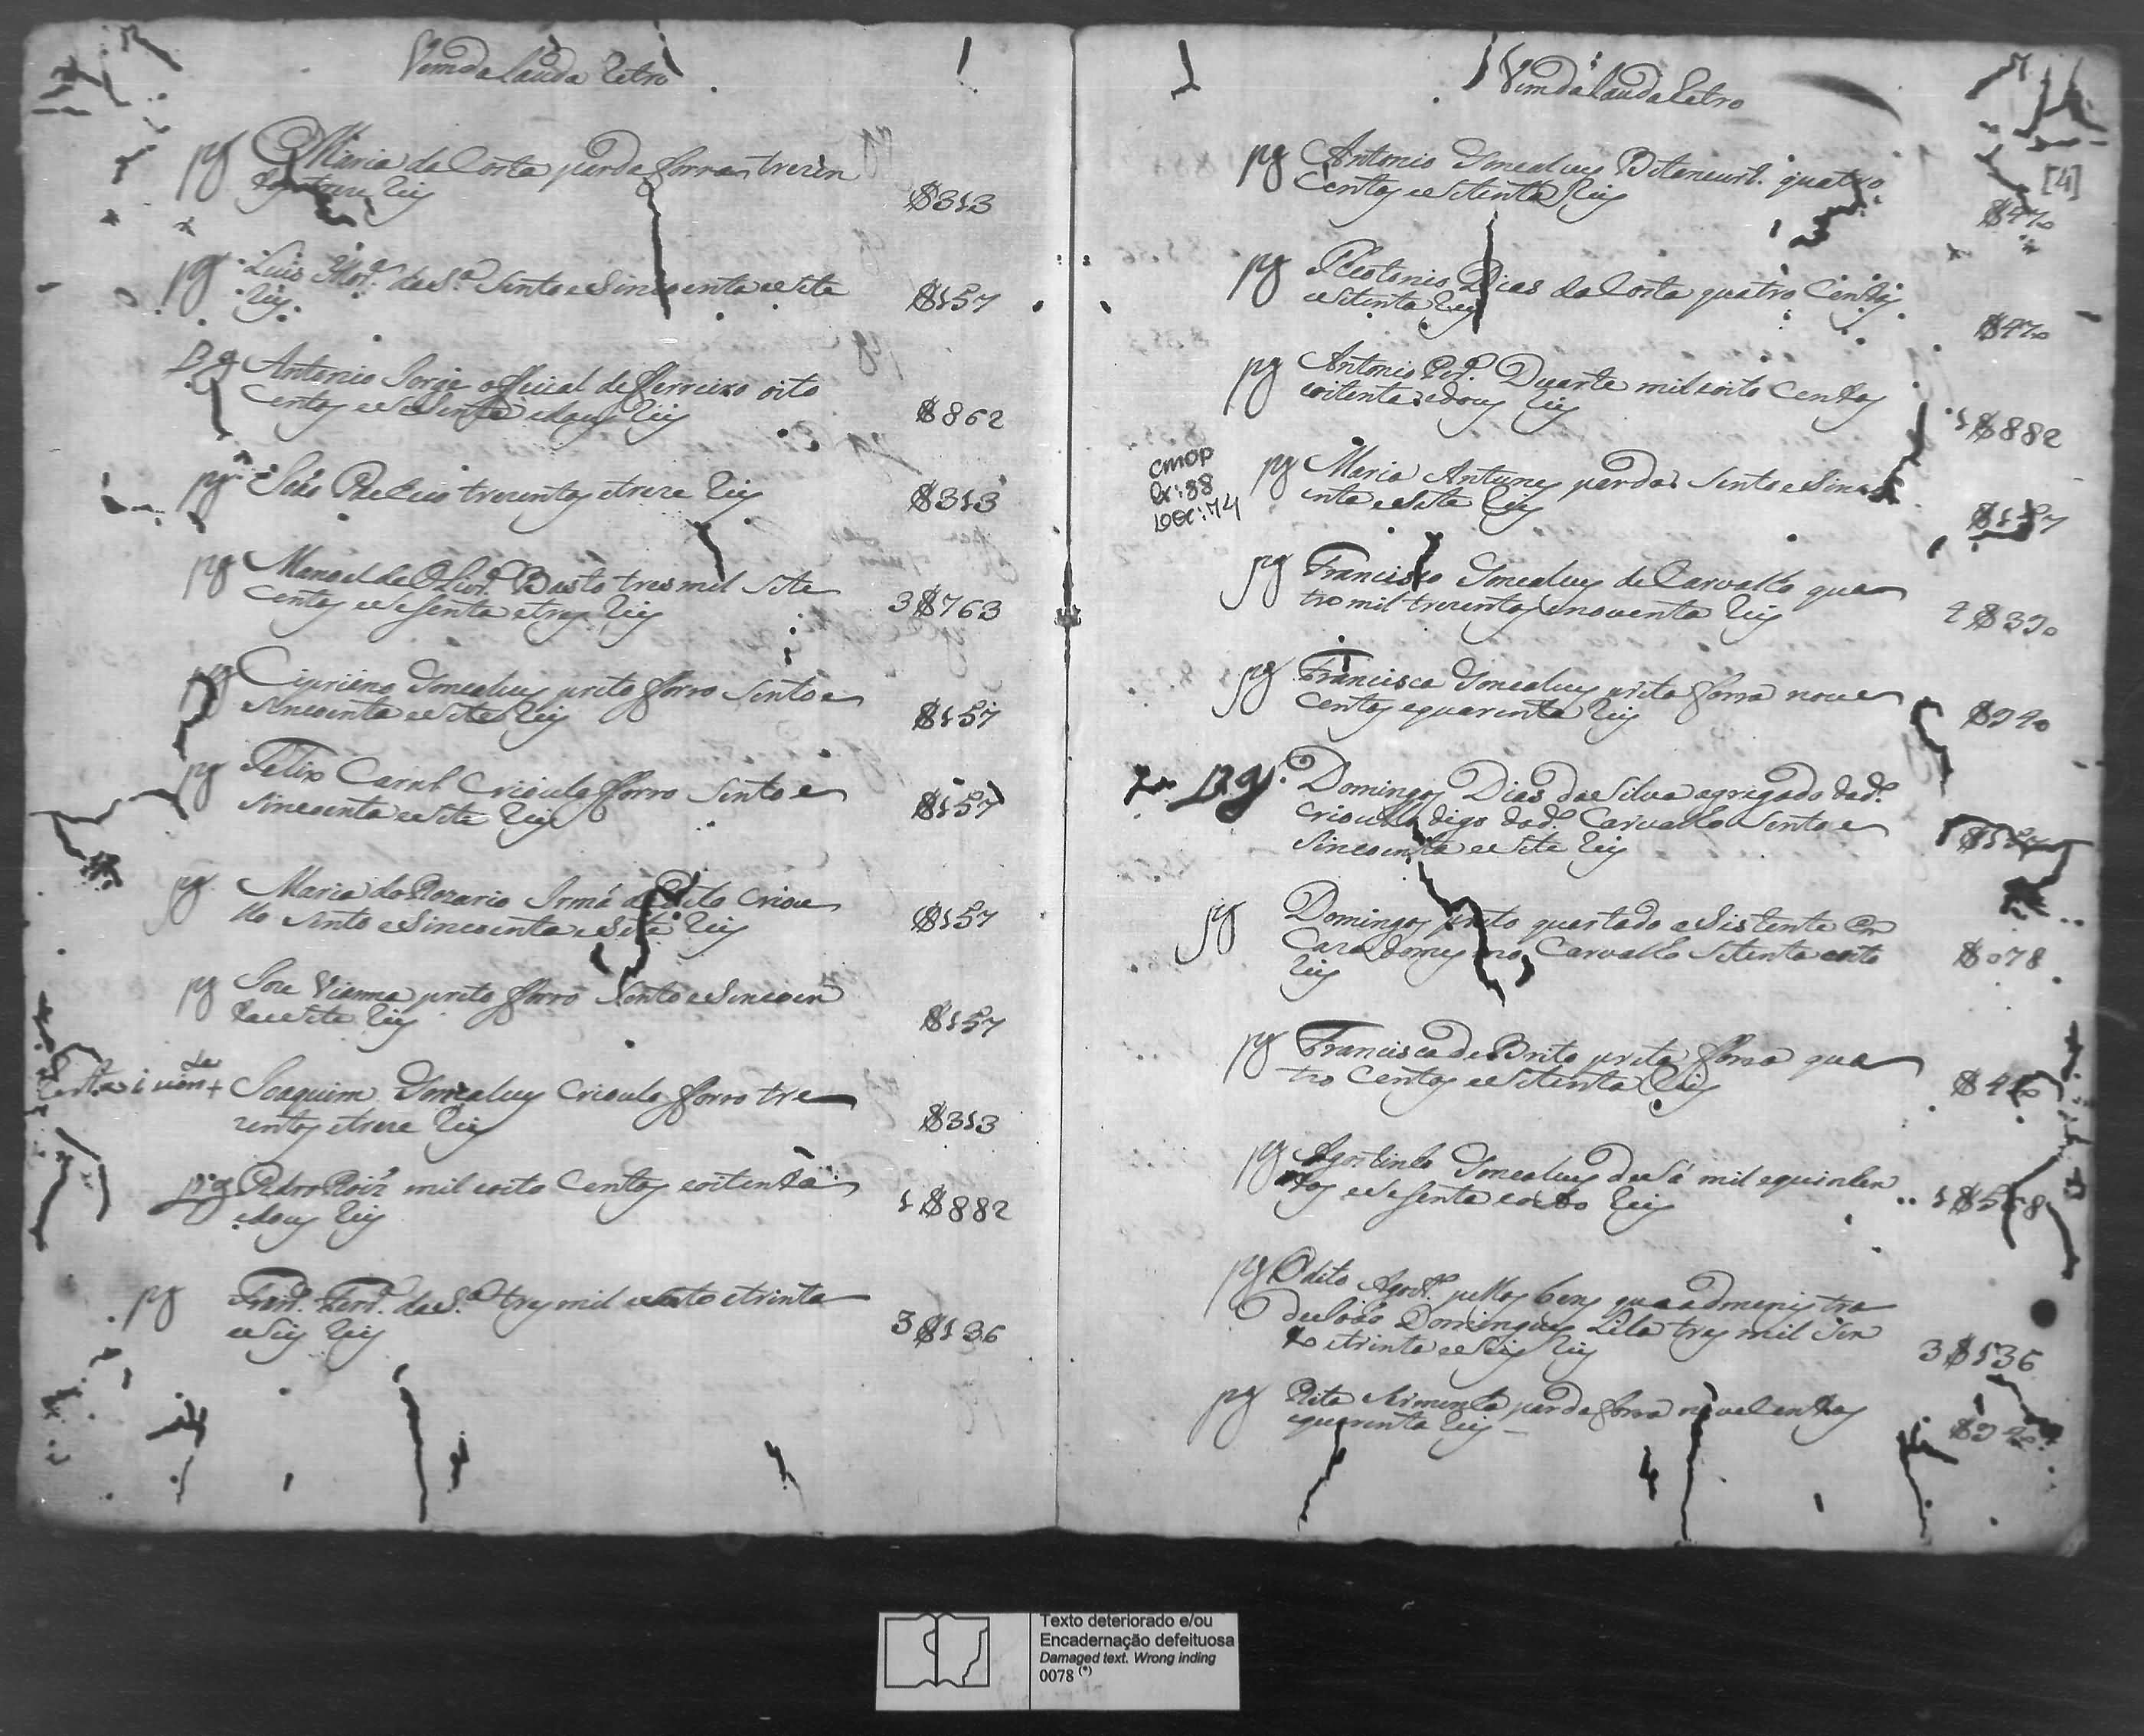 Vem da Lauda Retro
pg Maria da Costa parda forra trezen
tos e treze reis $313
pg Luis da S.ª sento e sincoenta e sete
reis $157
pg Antonio Jorge official de ferreiro oito
centos e sesenta e dous reis $862
pg João Pacheco trezentos e treze reis $313
pg Manoel de Olivr.ª Basto tres mil sete
centos e sesenta e tres reis 3$763
pg Cipriano Goncalues preto forro sento e
sincoenta e sete reis $157
pg Felix crioulo forro sento e
sincoenta e sete reis $157
pg Maria do Rozario Irmá do dito criou
lo sento e sincoenta e sete reis $157
pg Joze Vianna preto forro sento e sincoen
ta e sete reis $157
Joaquim Goncalues crioulo forro tre
zentos e treze reis $313
pg Pedro Roiz mil e oito centos e oitenta
e dous reis 1$882
pg da S.ª tres mil e sento e trinta
e seis reis 3$136
Vem da Lauda Retro
[4]
pg Antonio Goncalues Bitancurt. quatro
centos e setenta reis $470
pg Theotonio Dias da Costa quatro centos
e setenta reis $470
pg Antonio Per.ª Duarte mil e oito centos
e oitenta e dous reis 1$882
CMOP
Cx: 88
Doc: 74
pg Maria Antunes parda sento e sinco
enta e sete reis $157
pg Francisco Goncalues de Carvalho qua
tro mil trezentos e noventa reis 4$390
pg Francisca Goncalues preta forra nove
centos e quarenta reis $940
pg Domingos Dias da Silva agregado do d.º
crioullo digo do d.º Carvalho sento e
sincoenta e sete reis $157
pg Domingos preto quartado asistente em
Caza do mesmo Carvalho setenta e oito
reis $078
pg Francisca de Brito preta forra qua
tro centos e setenta reis $470
pg Agostinho Goncalues de Sá mil e quinhen
tos e sesenta e oito reis 1$568
pg O dito Agost.º pellos bens que admenistra
de João Domingues tres mil sen
to e trinta e seis reis 3$136
pg Rita parda forra nove centos
e quarenta reis $940
Texto deteriorado e/ou
Encadernação defeituosa
Damaged text. Wrong inding
0078 (*)